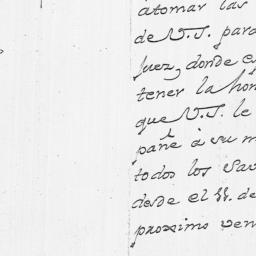 átomar las
de V.S. para
Juez, donde es
tener la hon
que V.S. le
pañe à su m
todos los Sav
desde el 11. de
proximo ven